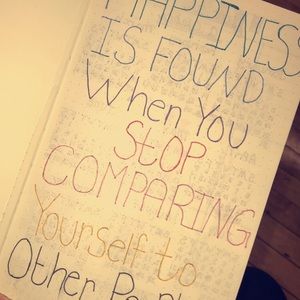 HAPPINESS
IS FOUND
When You
STOP
COMPARING
Yourself to
Other